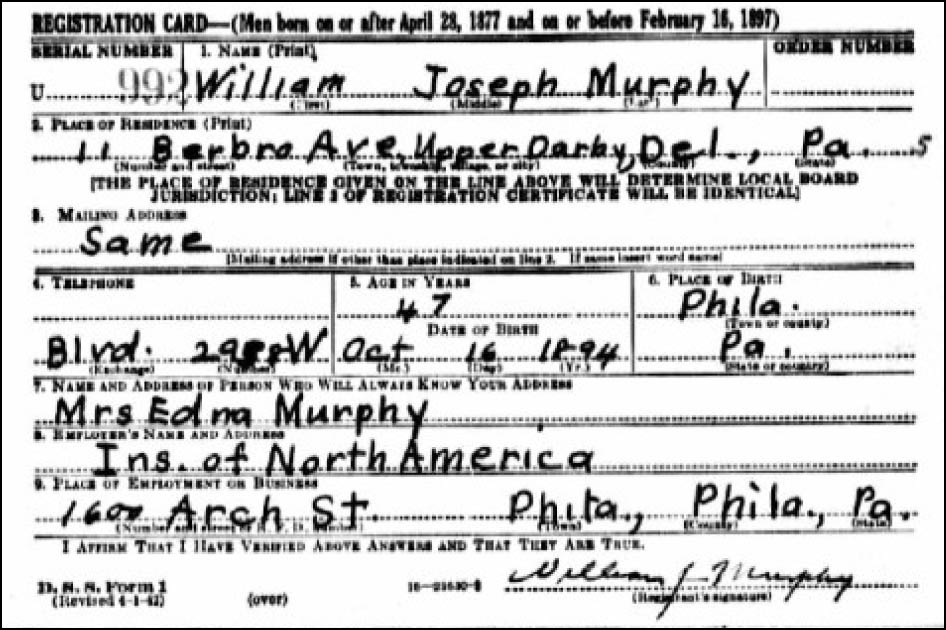 REGISTRATION CARD—(Men born on or after April 28, 1877 and on or before February 16, 1897)
SERIAL NUMBER 1. NAME (Print) ORDER NUMBER
U 992 William Joseph Murphy
(First) (Middle) (Last)
2. PLACE OF RESIDENCE (Print)
11 Berbro Ave, Upper Darby, Del., Pa. 5
(Number and street) (Town, township, village, or city) (County) (State)
[THE PLACE OF RESIDENCE GIVEN ON THE LINE ABOVE WILL DETERMINE LOCAL BOARD
JURISDICTION; LINE 2 OF REGISTRATION CERTIFICATE WILL BE IDENTICAL]
3. MAILING ADDRESS
Same
[Mailing address if other than place indicated on line 2. If same insert word same]
4. TELEPHONE 5. AGE IN YEARS 6. PLACE OF BIRTH
47 Phila.
DATE OF BIRTH (Town or county)
Blvd. W Oct 16 1894 Pa.
(Exchange) (Number) (Mo.) (Day) (Yr.) (State or country)
7. NAME AND ADDRESS OF PERSON WHO WILL ALWAYS KNOW YOUR ADDRESS
Mrs Edna Murphy
8. EMPLOYER'S NAME AND ADDRESS
Ins. of North America
9. PLACE OF EMPLOYMENT OR BUSINESS
1600 Arch St. Phila., Phila., Pa.
(Number and street or R. F. D. number) (Town) (County) (State)
I AFFIRM THAT I HAVE VERIFIED ABOVE ANSWERS AND THAT THEY ARE TRUE.
D. S. S. Form 1 William J Murphy
(Revised 4-1-42) (over) (Registrant's signature)